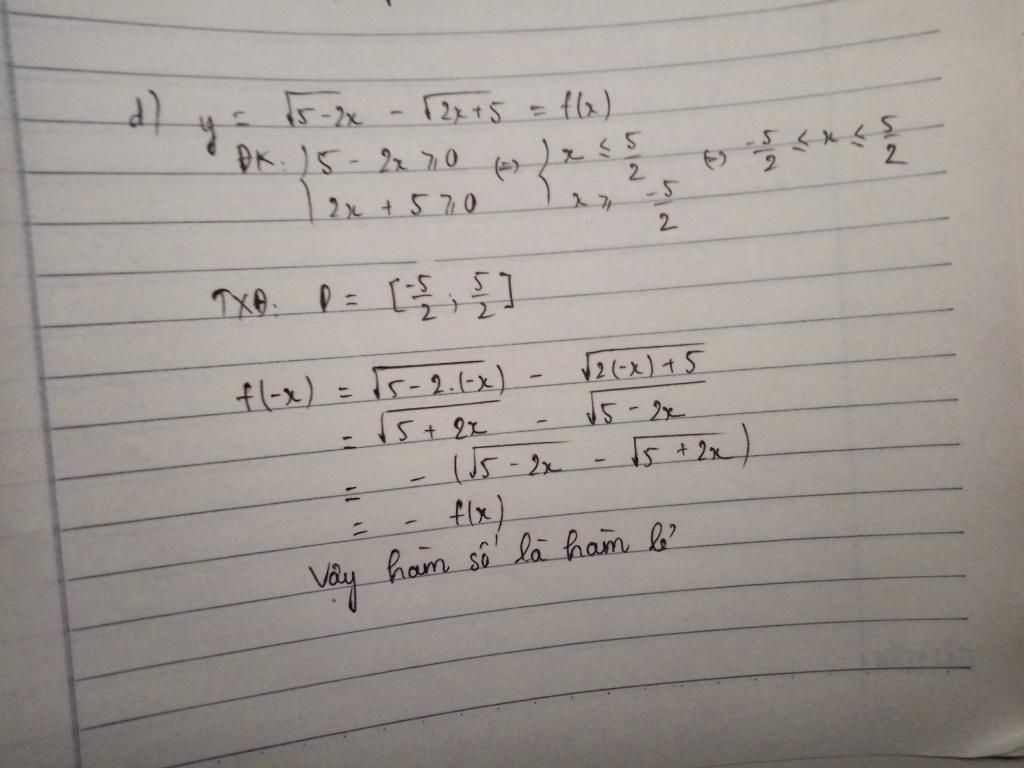 d) y = √5-2x - √2x+5 = f(x)
ĐK: { 5 - 2x ⩾ 0 (=) { x ≤ 5/2 (=) -5/2 ≤ x ≤ 5/2
2x + 5 ⩾ 0 x ⩾ -5/2
TXĐ: D = [-5/2 ; 5/2]
f(-x) = √5-2.(-x) - √2(-x)+5
= √5 + 2x - √5 - 2x
= - (√5 - 2x - √5 + 2x)
= - f(x)
Vậy hàm số là hàm lẻ